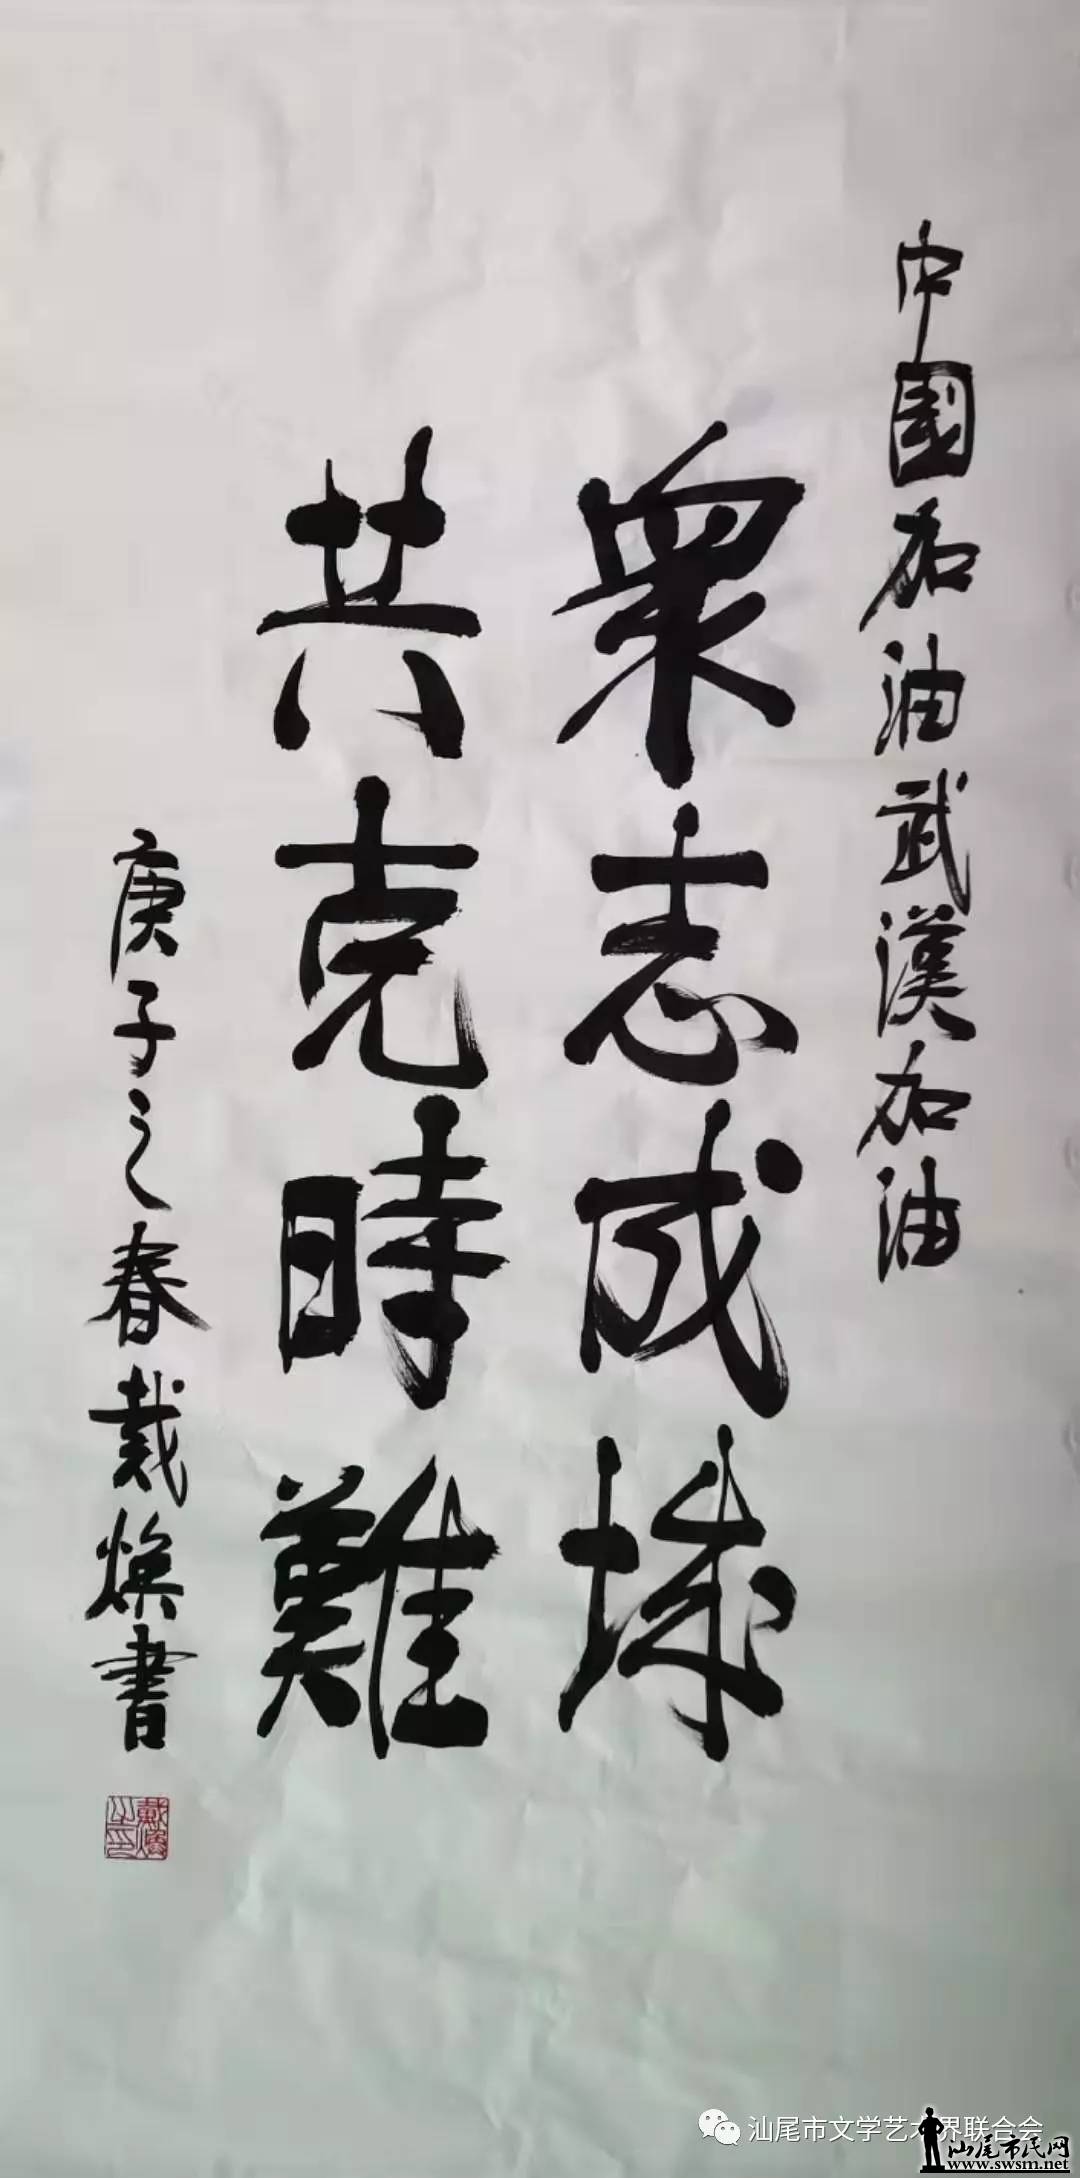 中國加油武漢加油
眾志成城
共克時難
庚子之春戴煥書
戴煥之印
汕尾市文学艺术界联合会
汕尾市民网
www.swsm.net